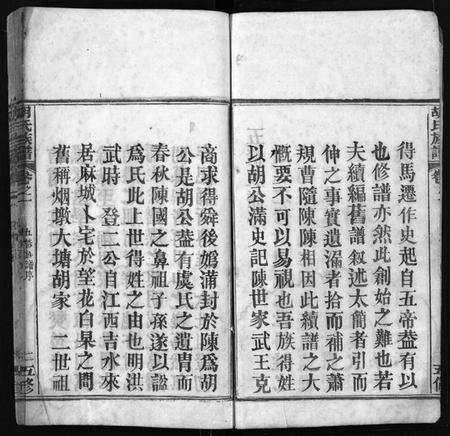 胡氏族譜
得馬遷作史起自五帝盖有以
也修譜亦然此創始之難也若
夫續編舊譜叙述太簡者引而
伸之事實遺溺者拾而補之蕭
規曹隨陳陳相因此續譜之大
慨要不可以易視也吾族得姓
以胡公滿史記陳世家武王克
商求得舜後媯滿封於陳爲胡
公是胡公盖有虞氏之遺胄而
春秋陳國之鼻祖子孫遂以諡
爲氏此上世得姓之由也明洪
武時 登二公自江西吉水來
居麻城卜宅於望花白杲之間
舊稱烟墩大塘胡家 二世祖
胡氏族譜
卷之一
五修